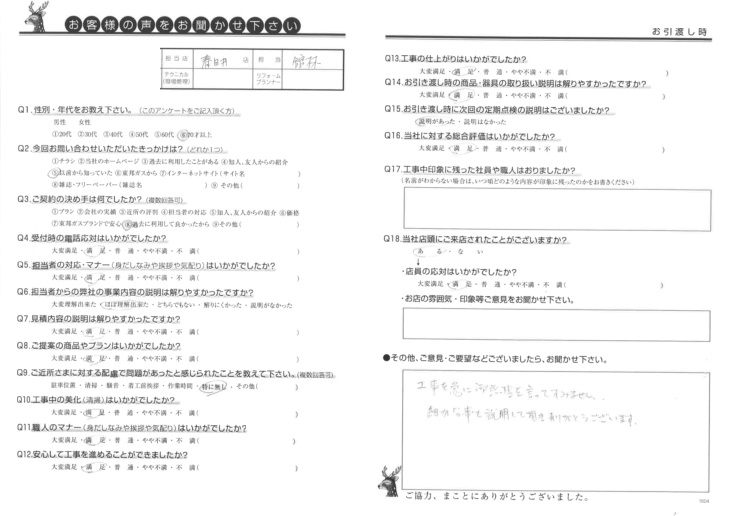 お客様の声をお聞かせ下さい
お引渡し時
担当店 春日井 店 担当 舘林
テクニカル(現場管理) リフォームプランナー
Q1.性別・年代をお教え下さい。(このアンケートをご記入頂く方)
男性 女性
①20代 ②30代 ③40代 ④50代 ⑤60代 ⑥70才以上
Q2.今回お問い合わせいただいたきっかけは?(どれか1つ)
①チラシ ②当社のホームページ ③過去に利用したことがある ④知人、友人からの紹介
⑤以前から知っていた ⑥東邦ガスから ⑦インターネットサイト(サイト名 )
⑧雑誌・フリーペーパー(雑誌名 ) ⑨その他( )
Q3.ご契約の決め手は何でしたか?(複数回答可)
①プラン ②会社の実績 ③近所の評判 ④担当者の対応 ⑤知人、友人からの紹介 ⑥価格
⑦東邦ガスブランドで安心 ⑧過去に利用して良かったから ⑨その他( )
Q4.受付時の電話応対はいかがでしたか?
大変満足・満 足・普 通・やや不満・不 満( )
Q5.担当者の対応・マナー(身だしなみや挨拶や気配り)はいかがでしたか?
大変満足・満 足・普 通・やや不満・不 満( )
Q6.担当者からの弊社の事業内容の説明は解りやすかったですか?
大変理解出来た・ほぼ理解出来た・どちらでもない・解りにくかった・説明がなかった
Q7.見積内容の説明は解りやすかったですか?
大変満足・満 足・普 通・やや不満・不 満( )
Q8.ご提案の商品やプランはいかがでしたか?
大変満足・満 足・普 通・やや不満・不 満( )
Q9.ご近所さまに対する配慮で問題があったと感じられたことを教えて下さい。(複数回答可)
駐車位置・清掃・騒音・着工前挨拶・作業時間・特に無し・その他( )
Q10.工事中の美化(清掃)はいかがでしたか?
大変満足・満 足・普 通・やや不満・不 満( )
Q11.職人のマナー(身だしなみや挨拶や気配り)はいかがでしたか?
大変満足・満 足・普 通・やや不満・不 満( )
Q12.安心して工事を進めることができましたか?
大変満足・満 足・普 通・やや不満・不 満( )
Q13.工事の仕上がりはいかがでしたか?
大変満足・満 足・普 通・やや不満・不 満( )
Q14.お引き渡し時の商品・器具の取り扱い説明は解りやすかったですか?
大変満足・満 足・普 通・やや不満・不 満( )
Q15.お引き渡し時に次回の定期点検の説明はございましたか?
説明があった・説明はなかった
Q16.当社に対する総合評価はいかがでしたか?
大変満足・満 足・普 通・やや不満・不 満( )
Q17.工事中印象に残った社員や職人はおりましたか?
(名前がわからない場合は、いつ頃どのような内容が印象に残ったのかをお書きください)
Q18.当社店頭にご来店されたことがございますか?
ある・ない
↓
・店員の応対はいかがでしたか?
大変満足・満 足・普 通・やや不満・不 満( )
・お店の雰囲気・印象等ご意見をお聞かせ下さい。
●その他、ご意見・ご要望などございましたら、お聞かせ下さい。
工事を急に御無理を言ってすみません。
細かな事も説明して頂きありがとうございます。
ご協力、まことにありがとうございました。